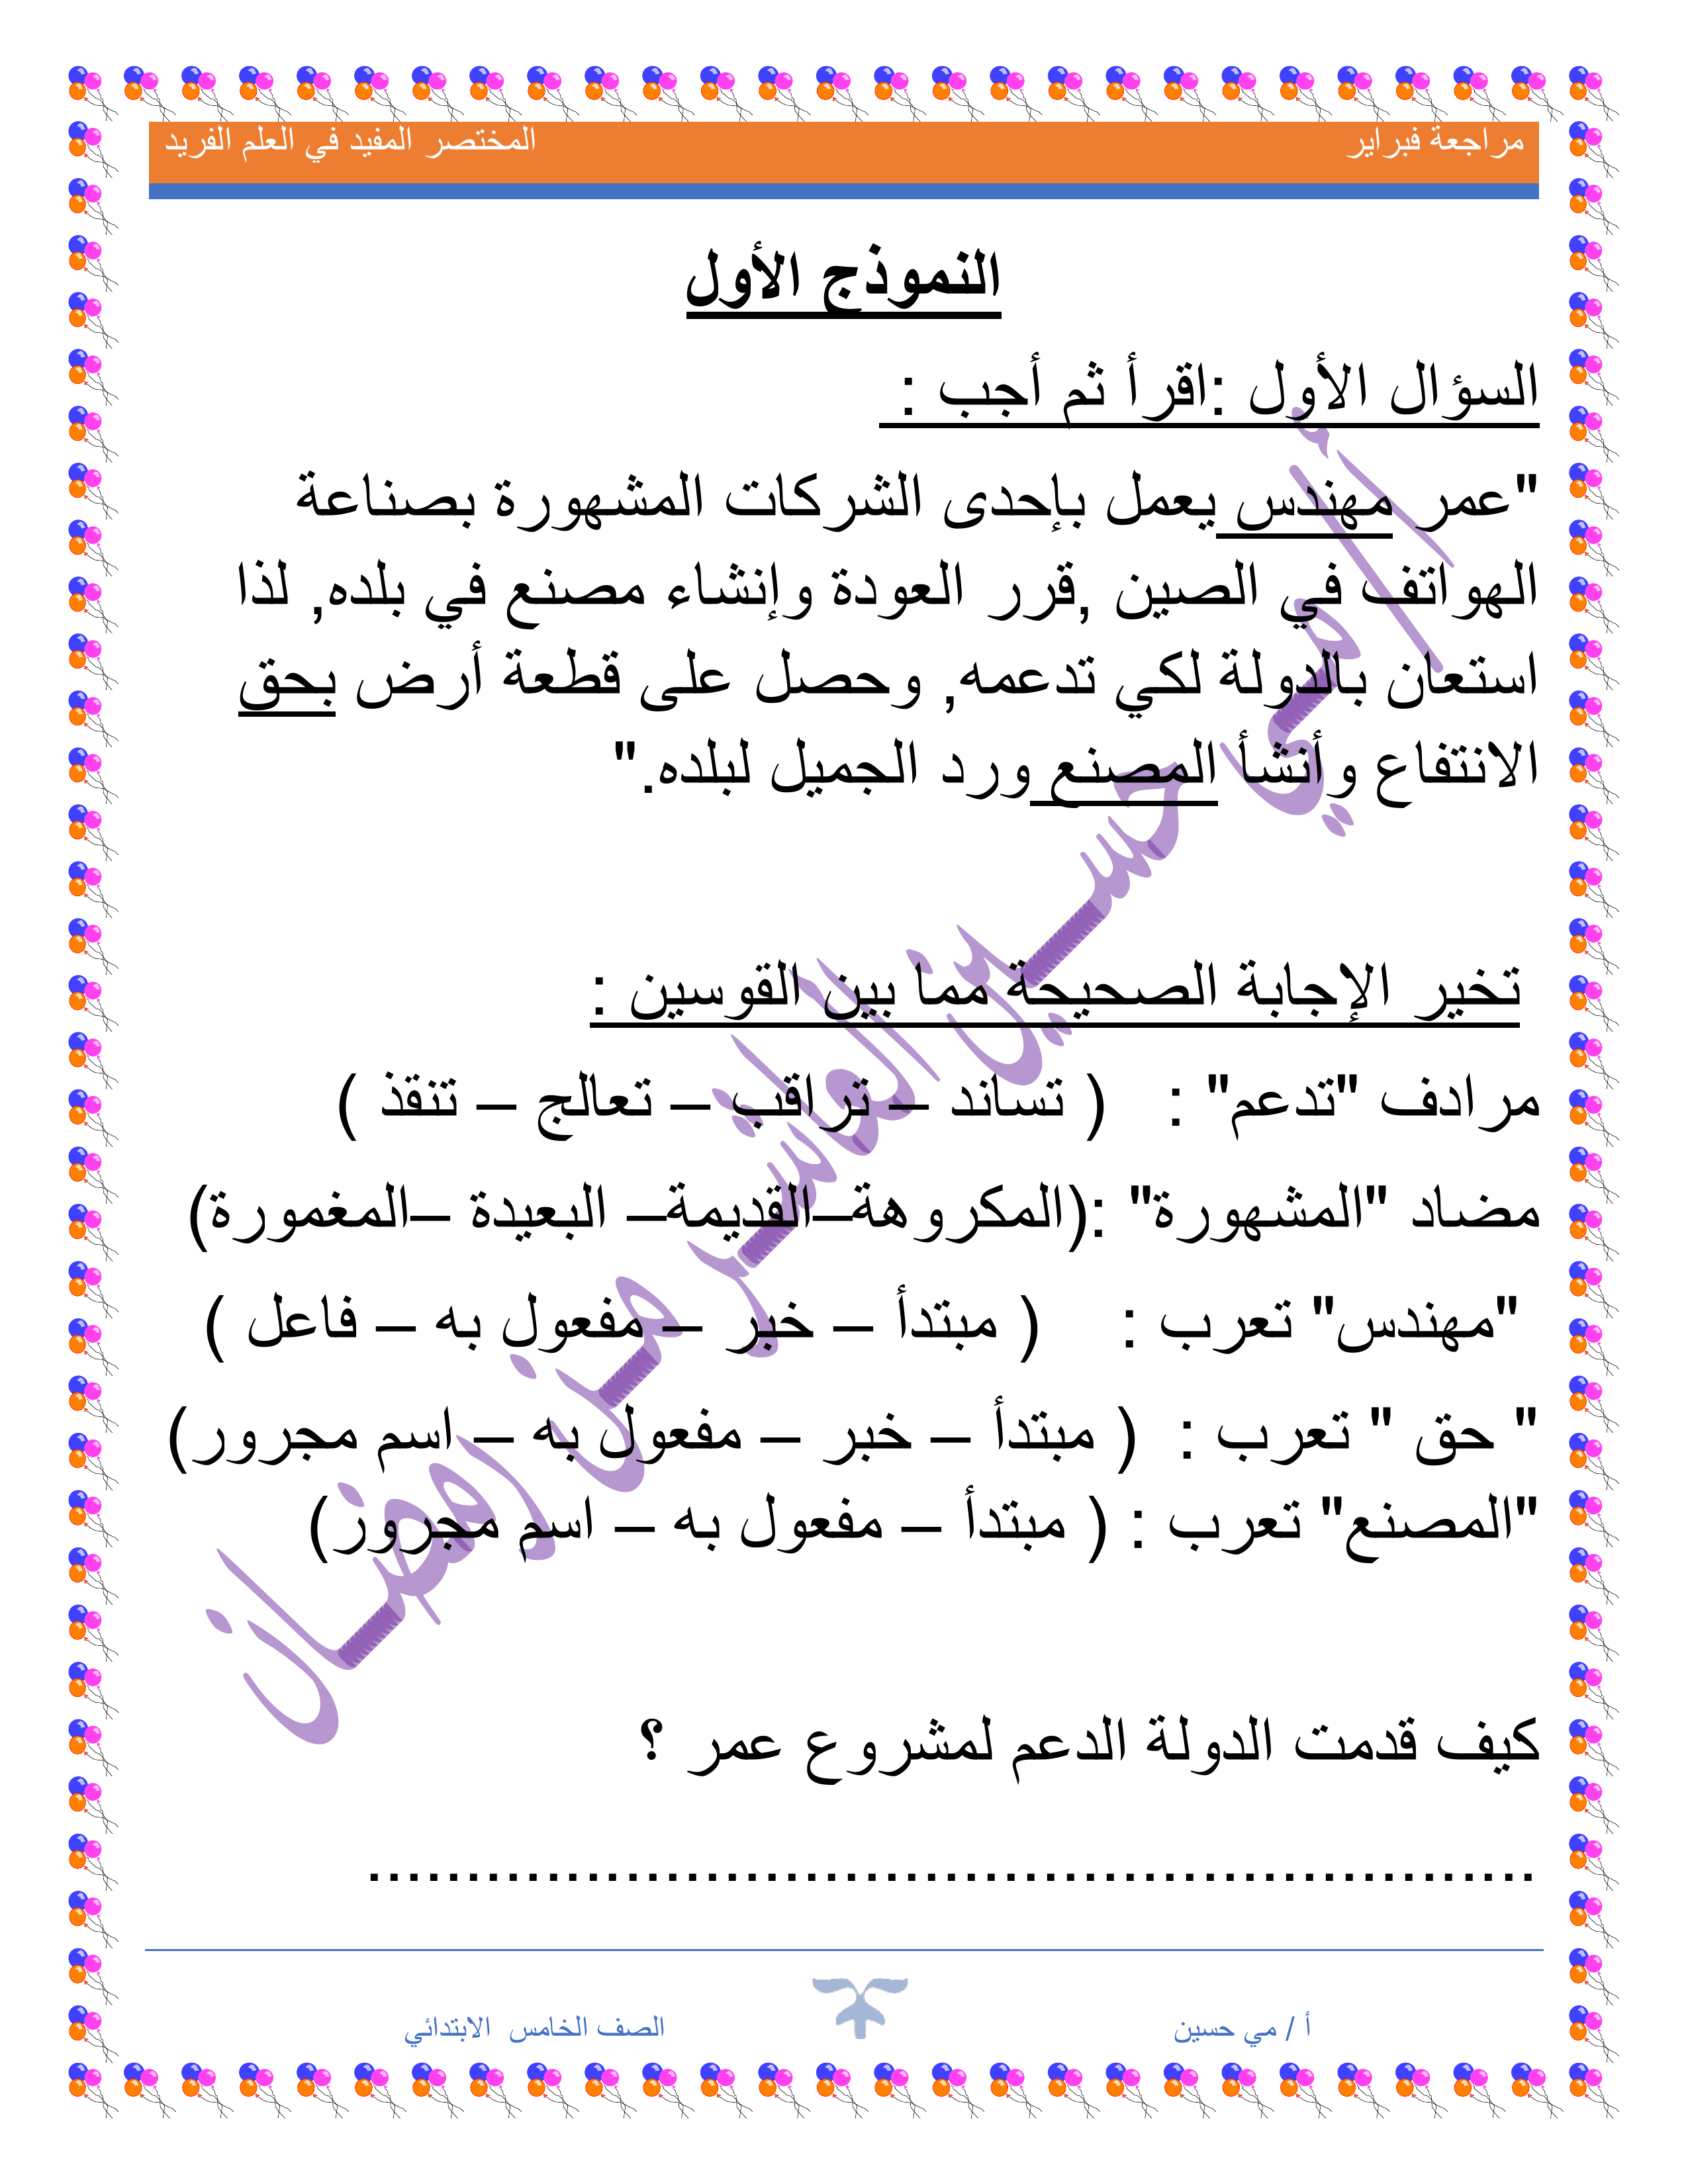 مراجعة فبراير المختصر المفيد في العلم الفريد
النموذج الأول
السؤال الأول :اقرأ ثم أجب :
"عمر مهندس يعمل بإحدى الشركات المشهورة بصناعة
الهواتف في الصين ,قرر العودة وإنشاء مصنع في بلده, لذا
استعان بالدولة لكي تدعمه, وحصل على قطعة أرض بحق
الانتفاع وأنشأ المصنع ورد الجميل لبلده."
تخير الإجابة الصحيحة مما بين القوسين :
مرادف "تدعم" : ( تساند – تراقب – تعالج – تنقذ )
مضاد "المشهورة" :(المكروهة–القديمة– البعيدة –المغمورة)
"مهندس" تعرب : ( مبتدأ – خبر – مفعول به – فاعل )
" حق " تعرب : ( مبتدأ – خبر – مفعول به – اسم مجرور)
"المصنع" تعرب : ( مبتدأ – مفعول به – اسم مجرور)
كيف قدمت الدولة الدعم لمشروع عمر ؟
................................................................
أ / مي حسين الصف الخامس الابتدائي
أ/مي حسين العاشر من رمضان